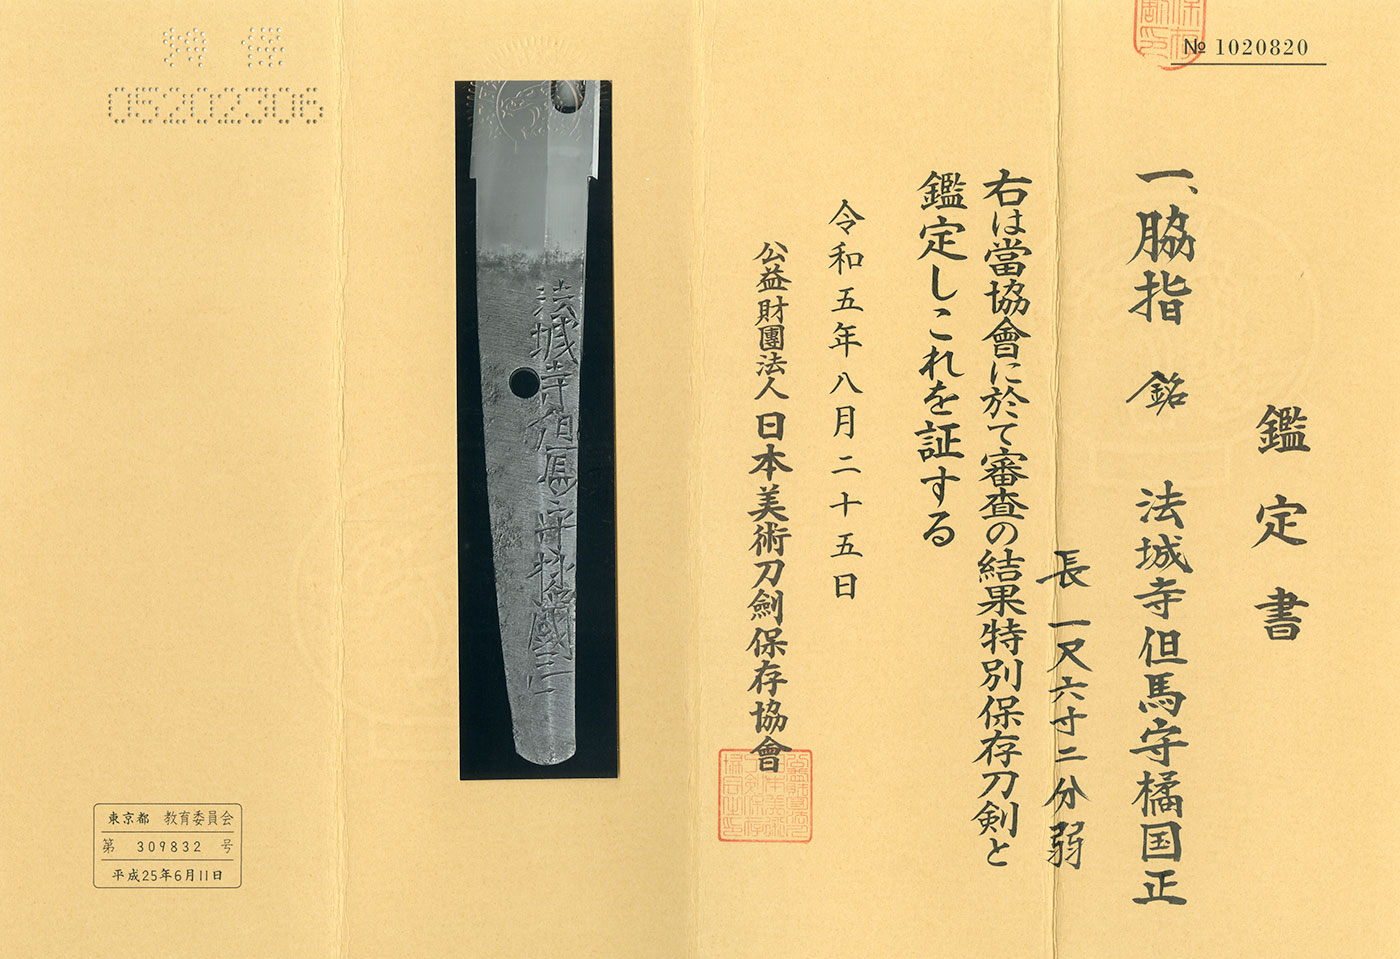 № 1020820
鑑定書
一、脇指 銘 法城寺但馬守橘国正
長 一尺六寸二分弱
右は當協會に於て審査の結果特別保存刀剣と
鑑定しこれを証する
令和五年八月二十五日
公益財團法人 日本美術刀劍保存協會
法城寺但馬守橘國正
特 保
05202306
東京都 教育委員会
第 309832 号
平成25年6月11日